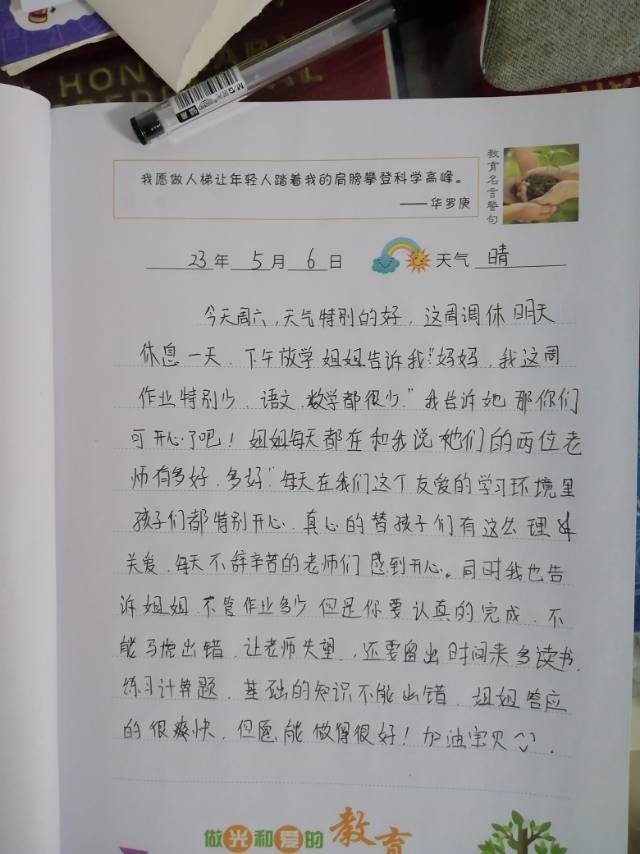 HON
我愿做人梯让年轻人踏着我的肩膀攀登科学高峰。
——华罗庚
教育名言警句
23年 5月 6日 天气 晴
今天周六,天气特别的好,这周调休明天
休息一天,下午放学姐姐告诉我:"妈妈,我这周
作业特别少,语文,数学都很少。"我告诉她那你们
可开心了吧!姐姐每天都在和我说她们的两位老
师有多好,多好"每天在我们这个友爱的学习环境里
孩子们都特别开心,真心的替孩子们有这么理
关爱,每天不辞辛苦的老师们感到开心。同时我也告
诉姐姐,不管作业多少但是你要认真的完成,不
能马虎出错,让老师失望,还要留出时间来多读书,
练习计算题,基础的知识不能出错,姐姐答应
的很爽快,但愿能做得很好!加油宝贝
做光和爱的教育